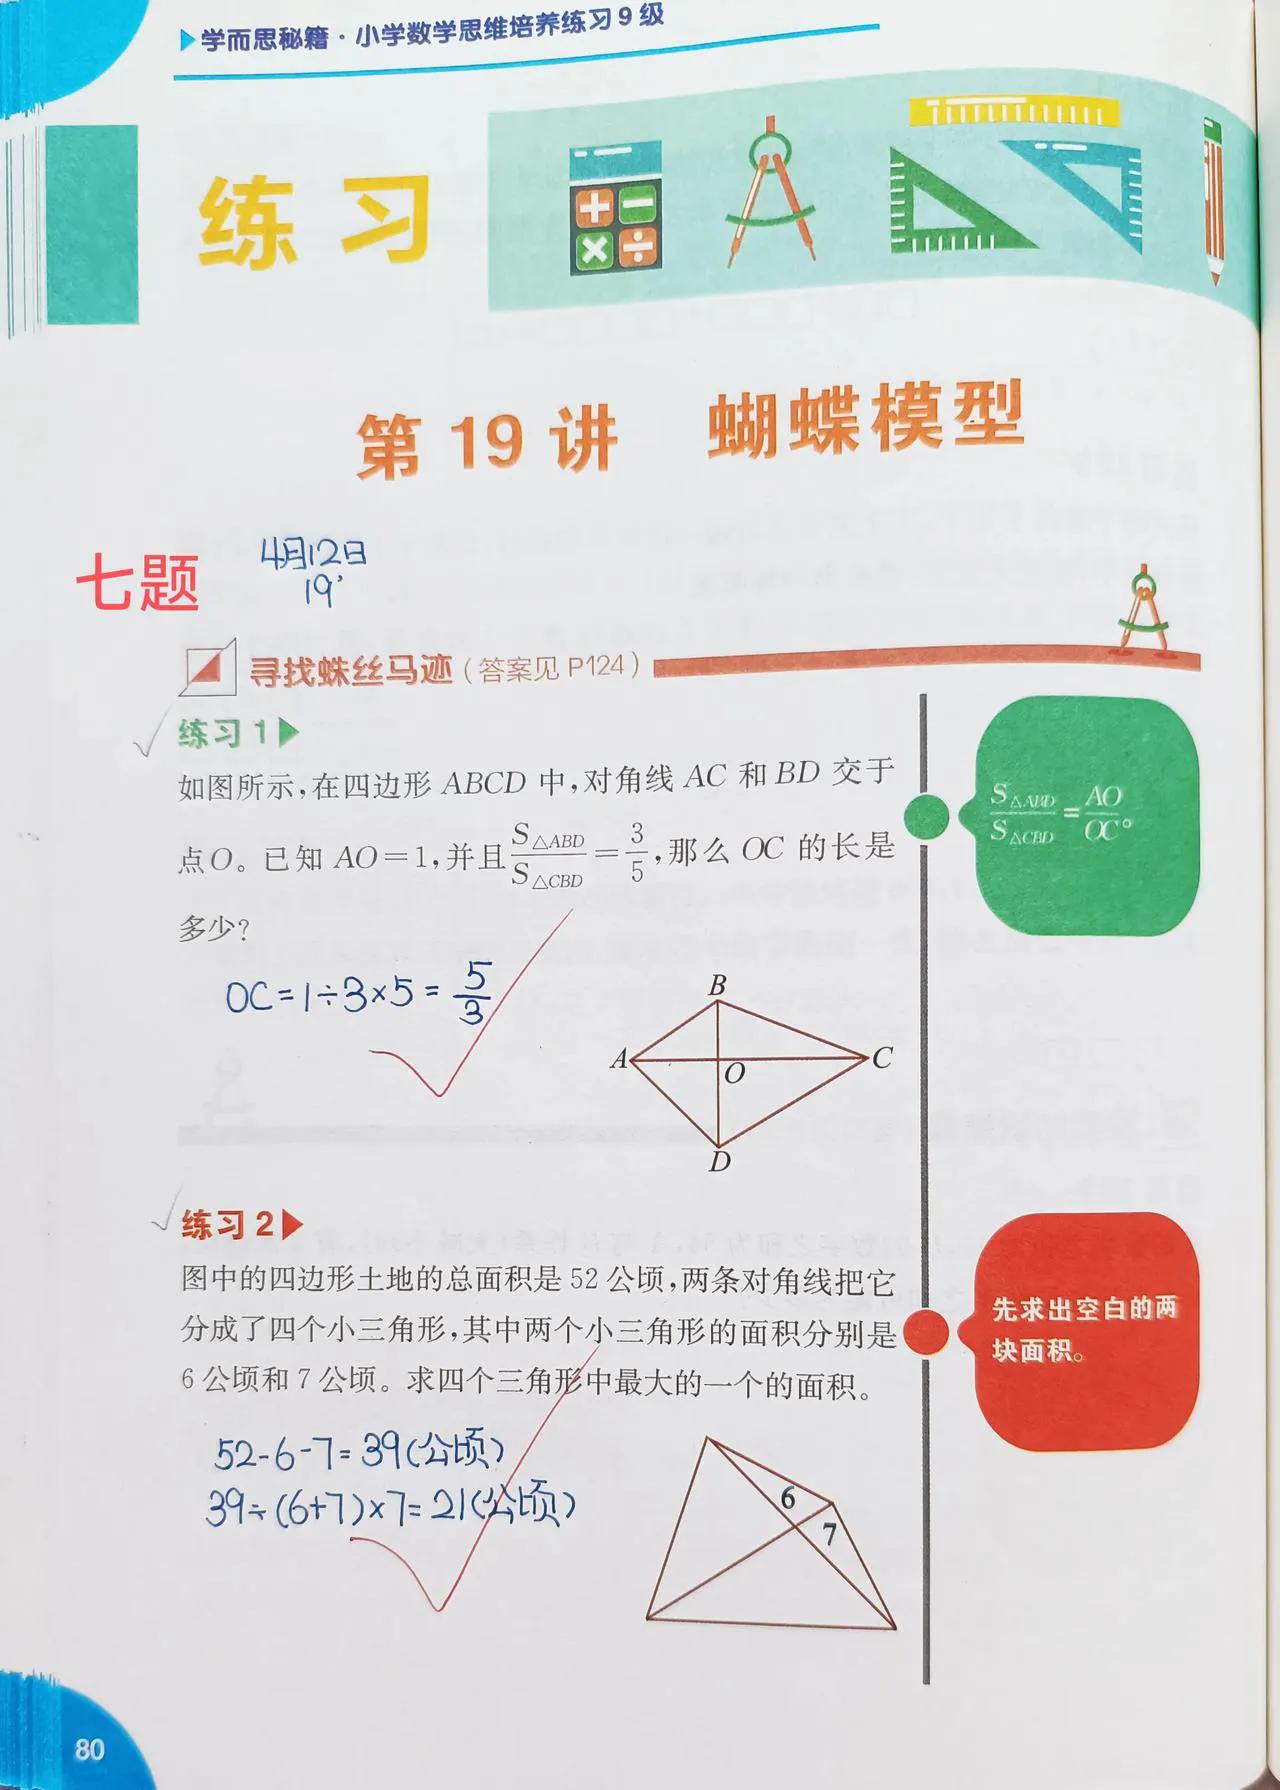 学而思秘籍·小学数学思维培养练习9级
练习
第19讲 蝴蝶模型
七题
4月12日
19'
寻找蛛丝马迹(答案见P124)
练习1
如图所示,在四边形ABCD中,对角线AC和BD交于
点O。已知AO=1,并且S△ABD/S△CBD=3/5,那么OC的长是
多少?
S△ABD/S△CBD=AO/OC。
OC=1÷3×5=5/3
B
A
O
C
D
练习2
图中的四边形土地的总面积是52公顷,两条对角线把它
分成了四个小三角形,其中两个小三角形的面积分别是
6公顷和7公顷。求四个三角形中最大的一个的面积。
先求出空白的两
块面积。
52-6-7=39(公顷)
39÷(6+7)×7=21(公顷)
6
7
80